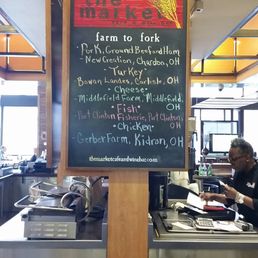 the
market
farm to fork
- Pork, Ground Beef and Ham
- New Creation, Chardon, OH
- Turkey -
Bowan Landes, Carlisle, OH
- Cheese -
Middlefield Farm, Middlefield, OH
- Fish -
Port Clinton Fisherie, Port Clinton, OH
- Chicken -
Gerber Farm, Kidron, OH
themarketcafeandwinebar.com